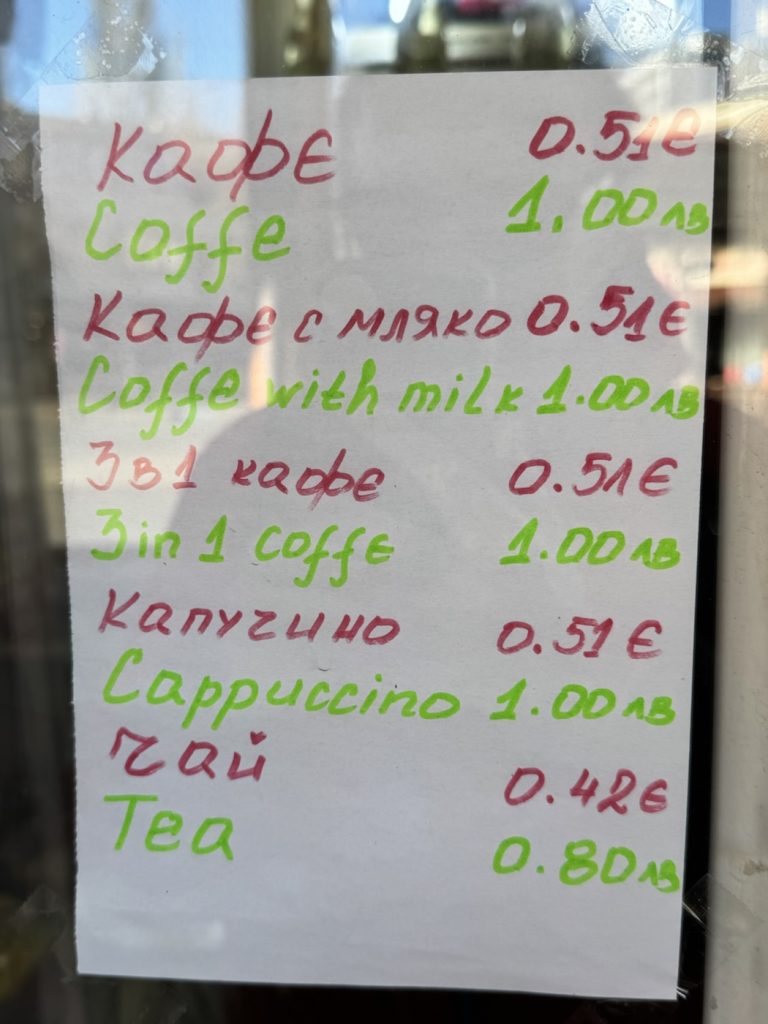 Кафе 0.51€
Coffe 1.00лв
Кафе с мляко 0.51€
Coffe with milk 1.00лв
3 в 1 кафе 0.51€
3 in 1 coffe 1.00лв
Капучино 0.51€
Cappuccino 1.00лв
Чай 0.42€
Tea 0.80лв